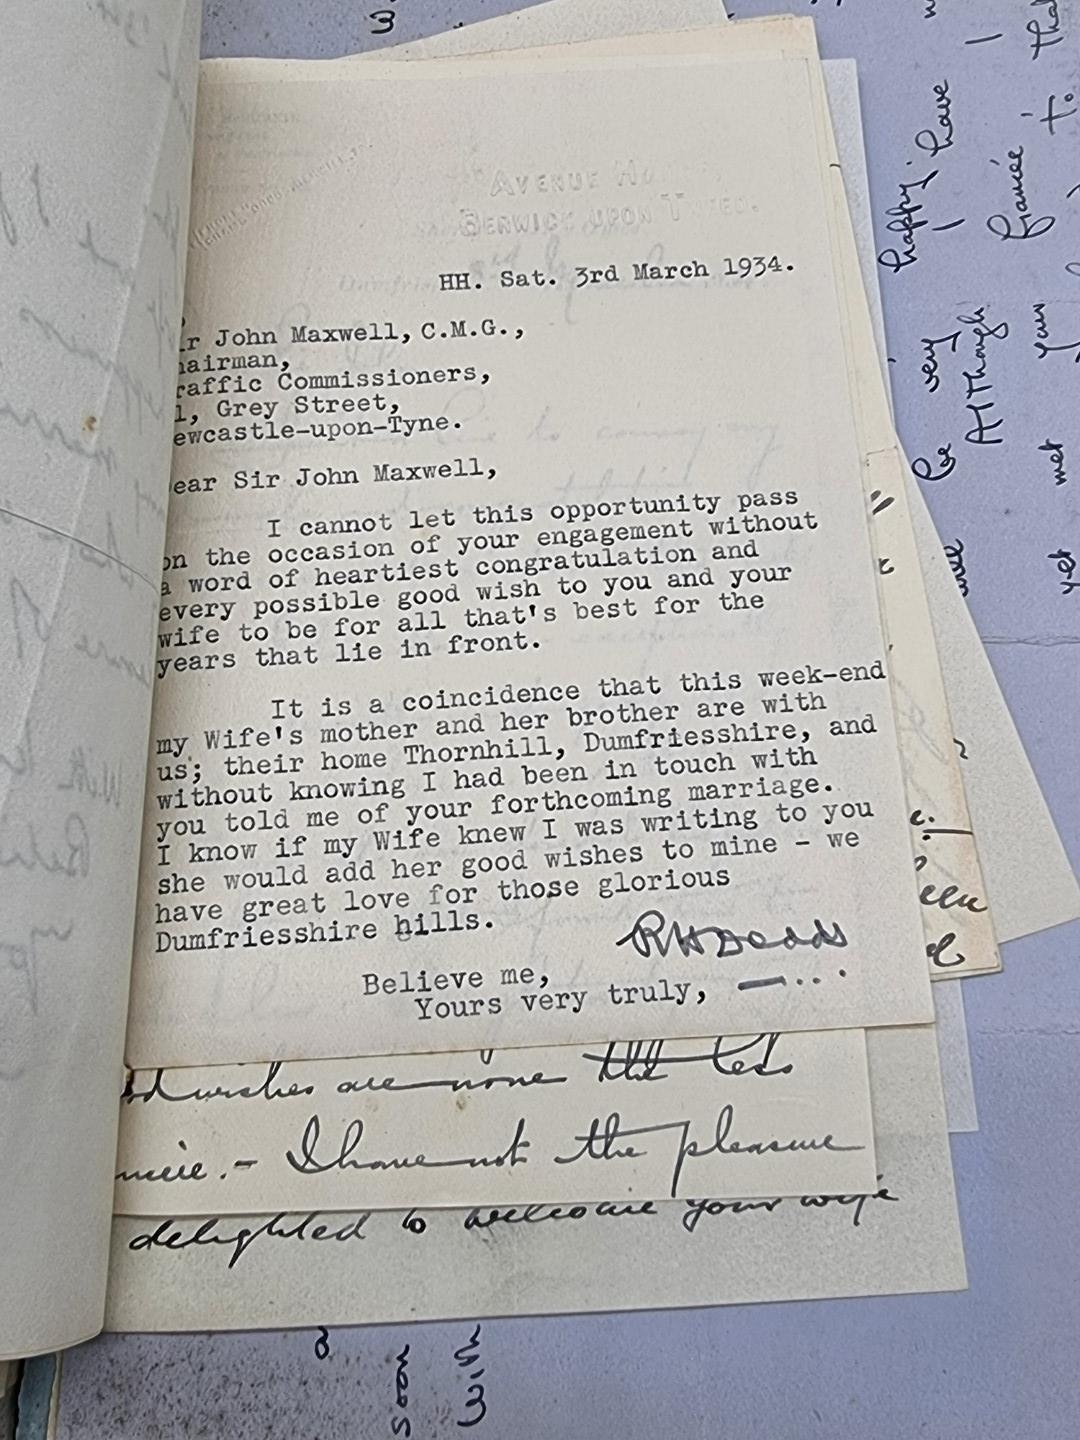 AVENUE
BERWICK UPON TWEED.
HH. Sat. 3rd March 1934.
r John Maxwell, C.M.G.,
hairman,
raffic Commissioners,
1, Grey Street,
ewcastle-upon-Tyne.
ear Sir John Maxwell,
I cannot let this opportunity pass
on the occasion of your engagement without
a word of heartiest congratulation and
every possible good wish to you and your
wife to be for all that's best for the
years that lie in front.
It is a coincidence that this week-end
my Wife's mother and her brother are with
us; their home Thornhill, Dumfriesshire, and
without knowing I had been in touch with
you told me of your forthcoming marriage.
I know if my Wife knew I was writing to you
she would add her good wishes to mine - we
have great love for those glorious
Dumfriesshire hills.
RHDodds
Believe me,
Yours very truly,
wishes are none the less
I have not the pleasure
delighted to welcome your wife
soon
With
happy. I have
be very
Although
fiancée
yet met your